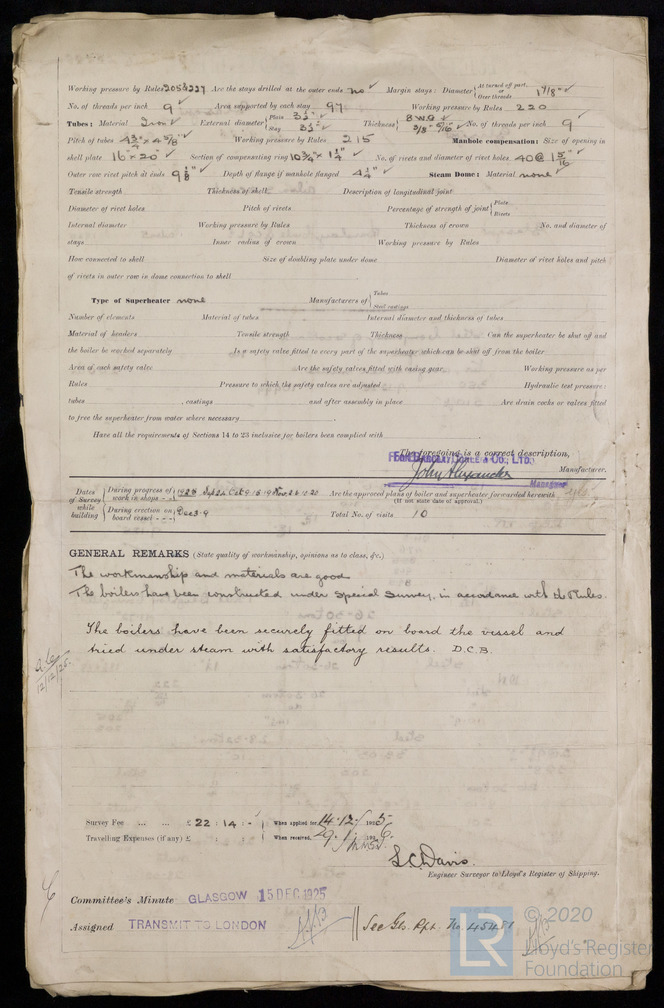 Working pressure by Rules 205 & 227 Are the stays drilled at the outer ends no Margin stays: Diameter { At turned off part, or Over threads 1 7/8"
No. of threads per inch 9 Area supported by each stay 97 Working pressure by Rules 220
Tubes: Material Iron External diameter { Plain 3 1/2" Stay 3 1/2" Thickness { 8 W.G. 3/8" 5/16" No. of threads per inch 9
Pitch of tubes 4 3/4" x 4 5/8" Working pressure by Rules 215 Manhole compensation: Size of opening in
shell plate 16" x 20" Section of compensating ring 10 3/4" x 1 1/4" No. of rivets and diameter of rivet holes 40 @ 1 5/16"
Outer row rivet pitch at ends 9 1/8" Depth of flange if manhole flanged 4 1/4" Steam Dome: Material none
Tensile strength Thickness of shell Description of longitudinal joint
Diameter of rivet holes Pitch of rivets Percentage of strength of joint { Plate Rivets
Internal diameter Working pressure by Rules Thickness of crown No. and diameter of
stays Inner radius of crown Working pressure by Rules
How connected to shell Size of doubling plate under dome Diameter of rivet holes and pitch
of rivets in outer row in dome connection to shell
Type of Superheater none Manufacturers of { Tubes Steel castings
Number of elements Material of tubes Internal diameter and thickness of tubes
Material of headers Tensile strength Thickness Can the superheater be shut off and
the boiler be worked separately Is a safety valve fitted to every part of the superheater which can be shut off from the boiler
Area of each safety valve Are the safety valves fitted with easing gear Working pressure as per
Rules Pressure to which the safety valves are adjusted Hydraulic test pressure:
tubes , castings and after assembly in place Are drain cocks or valves fitted
to free the superheater from water where necessary
Have all the requirements of Sections 14 to 23 inclusive for boilers been complied with
The foregoing is a correct description,
John Alexander Manufacturer.
Manager
Dates of Survey while building { During progress of work in shops - - 1925 Sept 24 Oct 9. 15. 19 Nov 2 6. 12. 20 Are the approved plans of boiler and superheater forwarded herewith
(If not state date of approval.)
During erection on board vessel - - - Dec 3. 9 Total No. of visits 10
GENERAL REMARKS (State quality of workmanship, opinions as to class, &c.)
The workmanship and materials are good
The boilers have been constructed under Special Survey, in accordance with the Rules.
The boilers have been securely fitted on board the vessel and
tried under steam with satisfactory results. D.C.B.
12/12/25.
Survey Fee ... ... £ 22 : 14 : - When applied for, 14.12. 1925
Travelling Expenses (if any) £ : : When received, 29.1. 1926
L.C. Davis.
Engineer Surveyor to Lloyd's Register of Shipping.
Committee's Minute GLASGOW 15 DEC 1925
Assigned TRANSMIT TO LONDON See Gls. Rpt. No. 45481
© 2020
LR Lloyd's Register
Foundation